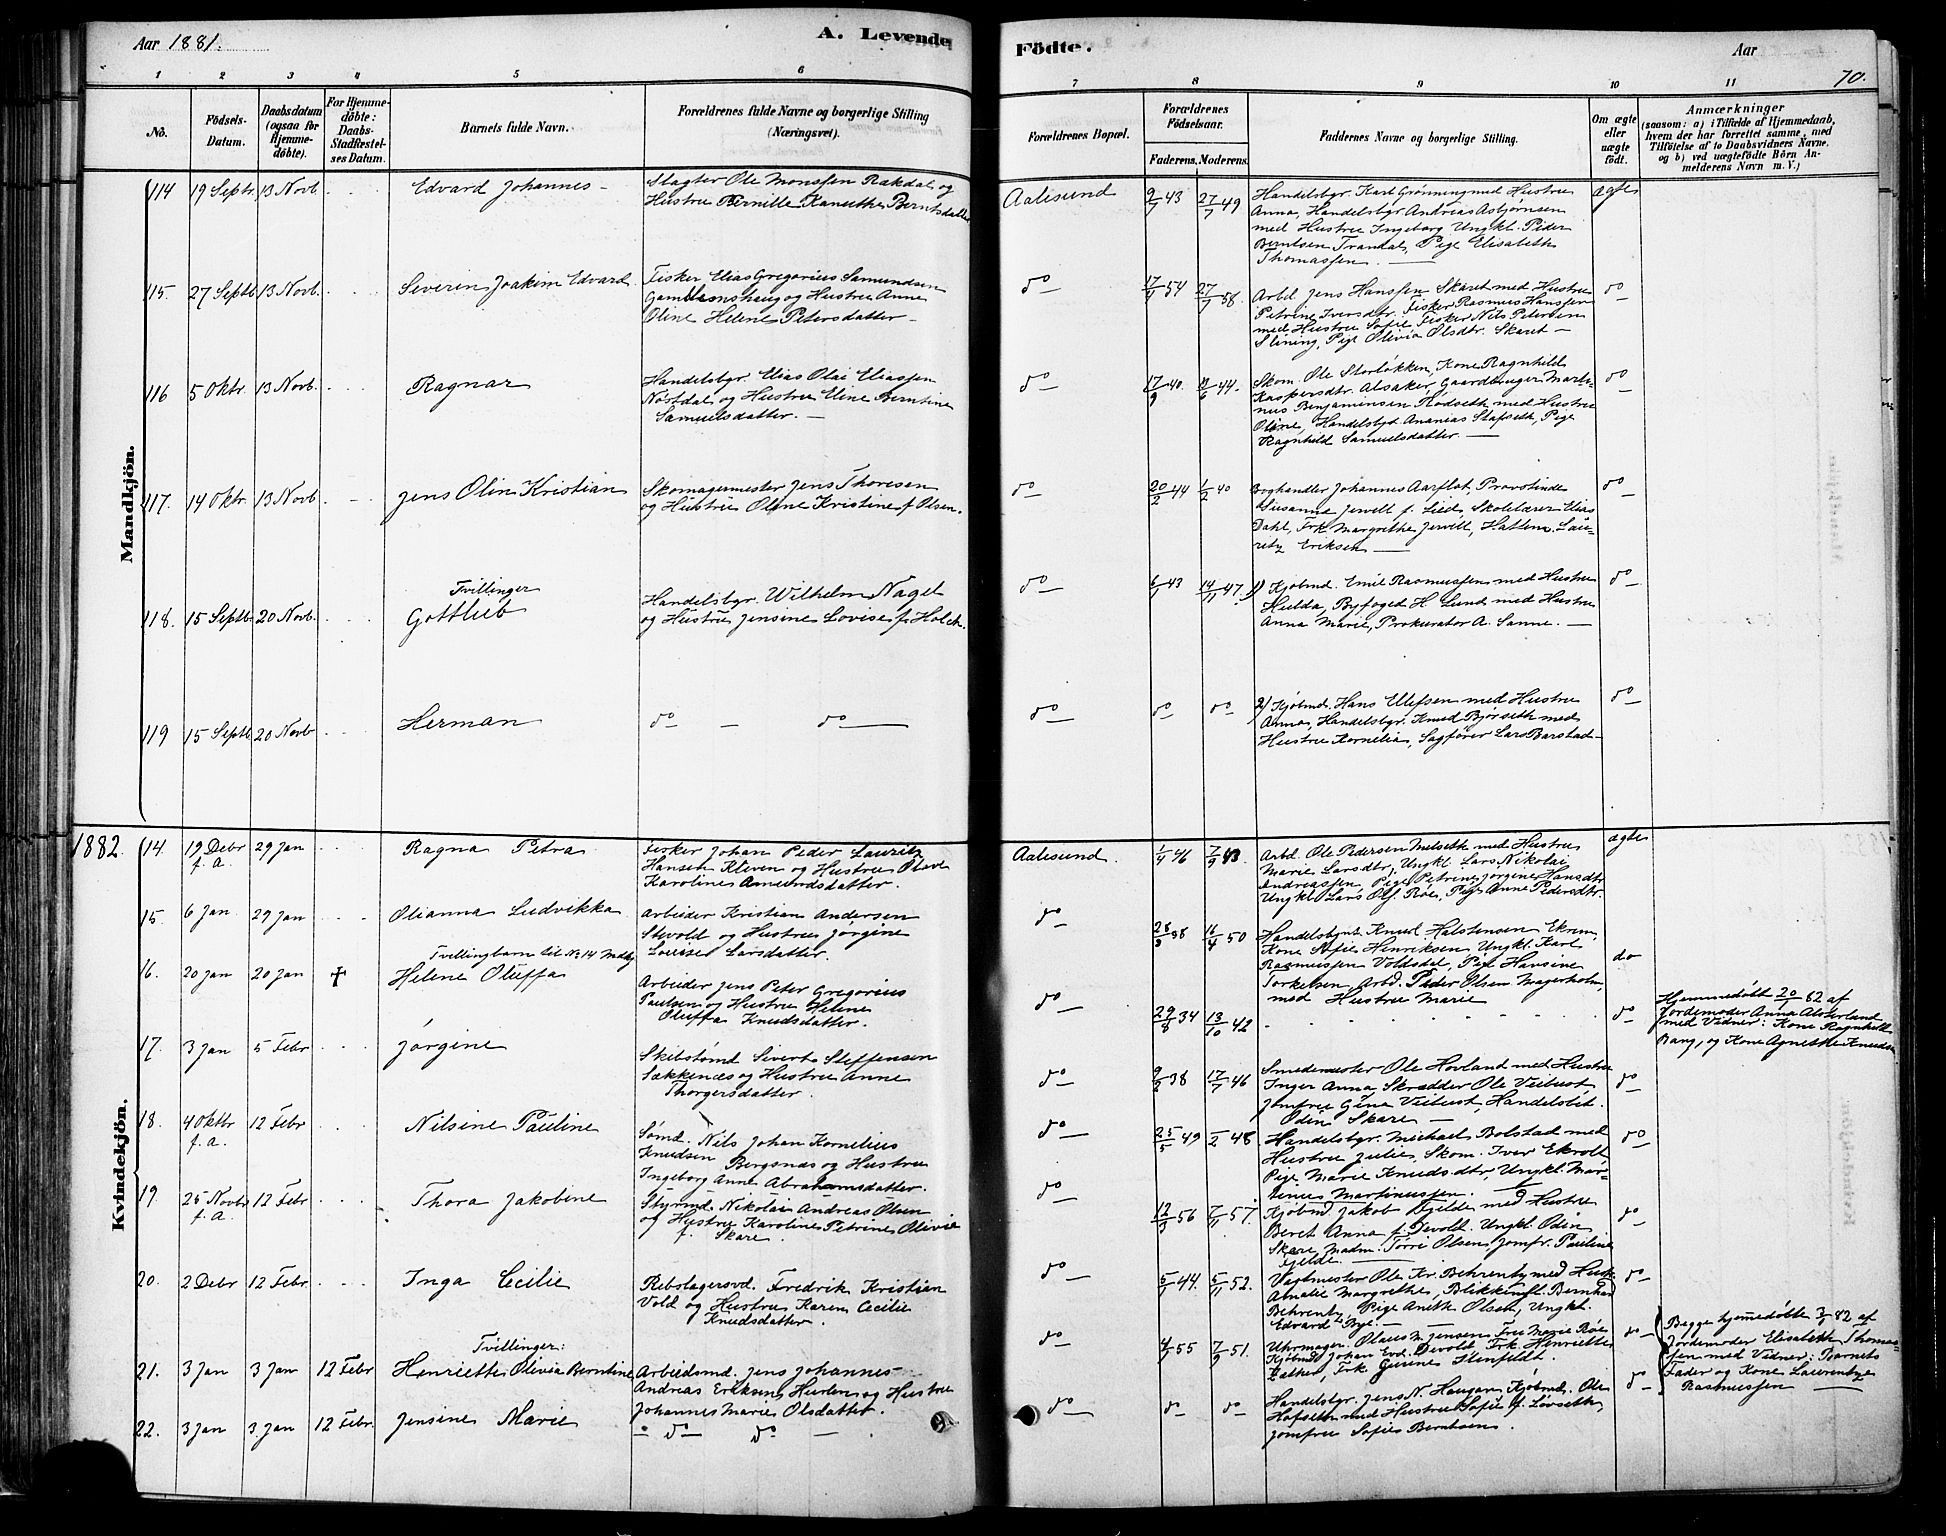 Aar 1881.
A. Levende
Födte.
Aar
70.
1 2 3 4 5 6 7 8 9 10 11
No.
Födsels-Datum.
Daabsdatum (ogsaa for Hjemme-döbte).
For Hjemme-döbte: Daabs-Stadfæstel-ses Datum.
Barnets fulde Navn.
Forældrenes fulde Navne og borgerlige Stilling
(Næringsvei).
Forældrenes Bopæl.
Forældrenes Födselsaar.
Faderens. Moderens.
Faddernes Navne og borgerlige Stilling.
Om ægte eller uægte födt.
Anmærkninger
(saasom: a) i Tilfælde af Hjemmedaab,
hvem der har forrettet samme, med
Tilföielse af to Daabsvidners Navne.
og b) ved uægtefödte Börn An-
melderens Navn m. V.)
Mandkjön.
114 19 Septr. 13 Novb. Edvard Johannes
Slagter Ole Monssen Rakdal og
Hustru Pernille Kanutthe Berntsdatter
Aalesund 9/7 43 27/7 49
Handelsbgr. Karl Grønning med Hustru
Anna, Handelsbgr Andreas Asbjørnsen
med Hustru Ingeborg Ungkl. Peder
Berntsen Trandal, Pige Elisabeth
Thomassen.
ægte
115. 27 Septb. 13 Novb. Severin Joakim Edvard
Fisker Elias Gregorius Samundsen
Gamlemshaug og Hustru Anne
Oline Helene Petersdatter
do 17/1 54 27/7 58.
Arbd Jens Hanssen Skaret med Hustru
Petrine Iversdtr. Fisker Rasmus Hanssen
med Hustru Sofie, Fisker Nils Petersen
Slining, Pige Olivia Olsdtr. Skaret
do
116 5 Oktr. 13 Novb. Ragnar
Handelsbgr. Elias Olai Eliassen
Nøstdal og Hustru Eline Berntine
Samuelsdatter.
do 17/9 40. 11/6 44.
Skom. Ole Storløkken, Kone Ragnhild
Kaspersdtr. Alsaker, Gaardbruger Marti-
nus Benjaminsen Rødseth med Hustru
Oline, Handelsbgd Ananias Stafseth, Pige
Ragnhild Samuelsdatter.
do
117. 14 Oktr. 13 Novb Jens Olin Kristian
Skomagermester Jens Thoresen
og Hustru Oline Kristine f Olsen.
do 20/2 44 1/2 40
Boghandler Johannes Aarflot, Provstinde
Susanne Jervell f. Lied, Skolelærer Elias
Dahl, Frk. Margrethe Jervell, Hattem. Lau-
ritz Eriksen
do
118. 15 Septb. 20 Novb. Tvillinger
Gottlieb
Handelsbgr. Wilhelm Nagel
og Hustru Jensine Lovise f. Holck.
do 6/1 43 14/11 47.
1) Kjøbmd. Emil Rasmussen med Hustru
Hulda, Byfoged H. Lund med Hustru
Anna Marie, Prokurator A. Sanne.
do
119 15 Septb. 20 Novb Herman
do do
do do do
2) Kjøbmd. Hans Ellefsen med Hustru
Anna, Handelsbgr. Knud Bjørseth med
Hustru Kornelia, Sagfører Lars Barstad
do
Kvindekjön.
1882. 14. 19 Debr f. a. 29 Jan Ragna Petra
Fisker Johan Peder Lauritz
Hansen Kleven og Hustru Olave
Karoline Amundsdatter.
Aalesund. 1/4 46 7/9 43
Arbd. Ole Pedersen Melseth med Hustru
Marie Larsdtr, Ungkl. Lars Nikolai
Andreassen, Pige Petrine Jørgine Hansdtr
Ungkl Lars Olf. Røe, Pige Anne Pedersdtr.
ægte
15 6 Jan 29 Jan Olianna Ludvikka
Arbeider Kristian Andersen
Stevold og Hustru Jørgine
Lovise Larsdatter.
do 28/3 38 16/4 50
Handelsbgt. Knud Halstensen Ekrem,
Kone Sofie Henriksen, Ungkl. Karl
Rasmussen Voldsdal, Pige Hansine
Torkelsen, Arbd. Peder Olsen Magerholm,
med Hustru Marie
do
Tvillingbarn til No 14 Mdkj
16. 20 Jan 20 Jan † Helene Oluffa
Arbeider Jens Peter Gregorius
Paulsen og Hustru Helene
Oluffa Knudsdatter.
do 29/8 34 13/10 42
do
Hjemmedøbt 20/1 82 af
Jordemoder Anna Alsterlund
med Vidner: Kone Ragnhild
Bang, og Kone Agnethe Knudsen
17. 3 Jan 5 Febr Jørgine
Skibstømd Sivert Steffensen
Sækkenæs og Hustru Anne
Thorgersdatter.
do 9/2 38 17/7 46
Smedemester Ole Hovland med Hustru
Inger Anna, Skrædder Ole Veibust
Jomfru Gina Veibust, Handelsbet.
Odin Skare
do
18. 4 Oktbr f. a. 12 Febr Nilsine Pauline
Sømd. Nils Johan Kornelius
Knudsen Bergsnæs og Hustru
Ingeborg Anne Abrahamsdatter.
do 25/5 49 1/2 48
Handelsbgr. Michael Bolstad med
Hustru Julie, Skom. Iver Ekroll
Pige Marie Knudsdtr, Ungkl. Mar-
tinus Martinussen.
do
19. 25 Novbr f. a. 12 Febr Thora Jakobine
Styrmd. Nikolai Andreas Olsen
og Hustru Karoline Petrine Olivia
f. Skare.
do 12/3 56 7/11 57.
Kjøbmd. Jakob Gjelde med Hustru
Beret Anna f. Devold. Ungkl. Odin
Skare, Madm. Tørre Olsen, Jomfr. Pauline
Gjelde.
do
20. 2 Debr 12 Febr. Inga Cecilie
Rebslagersvd. Fredrik Kristian
Vold og Hustru Karen Cecilie
Knudsdatter.
do 5/1 44. 5/11 52.
Vagtmester Ole Kr. Behrenby med Hust.
Amalie Margrethe, Blikkensl. Bernhard
Behrenby, Pige Aneth Olsen, Ungkl.
Edvard Bye.
do
Tvillinger:
21. 3 Jan 3 Jan 12 Febr Henriette Olivia Berntine
Arbeidsmd. Jens Johannes
Andreas Eriksen Hurlen og Hustru
Johanne Marie Olsdatter.
do 4/1 55 7/9 51.
Uhrmager. Olaus M. Jensen, Fru Marie Røe
Kjøbmd. Johan Evd. Devold, Frk Henriette
do
Begge hjemmedøbte 3/1 82 af
Jordemoder Elisabeth Thomas-
sen med Vidner: Barnets
Fader og Kone Laurentze
Rasmussen
22. 3 Jan 3. Jan 12 Febr. Jensine Marie
do do
do do do
Handelsbgr. Jens N. Haugan, Kjøbmd. Ole
Hofseth med Hustru Sofie f. Løvseth,
Jomfru Sofie Berntsen.
do